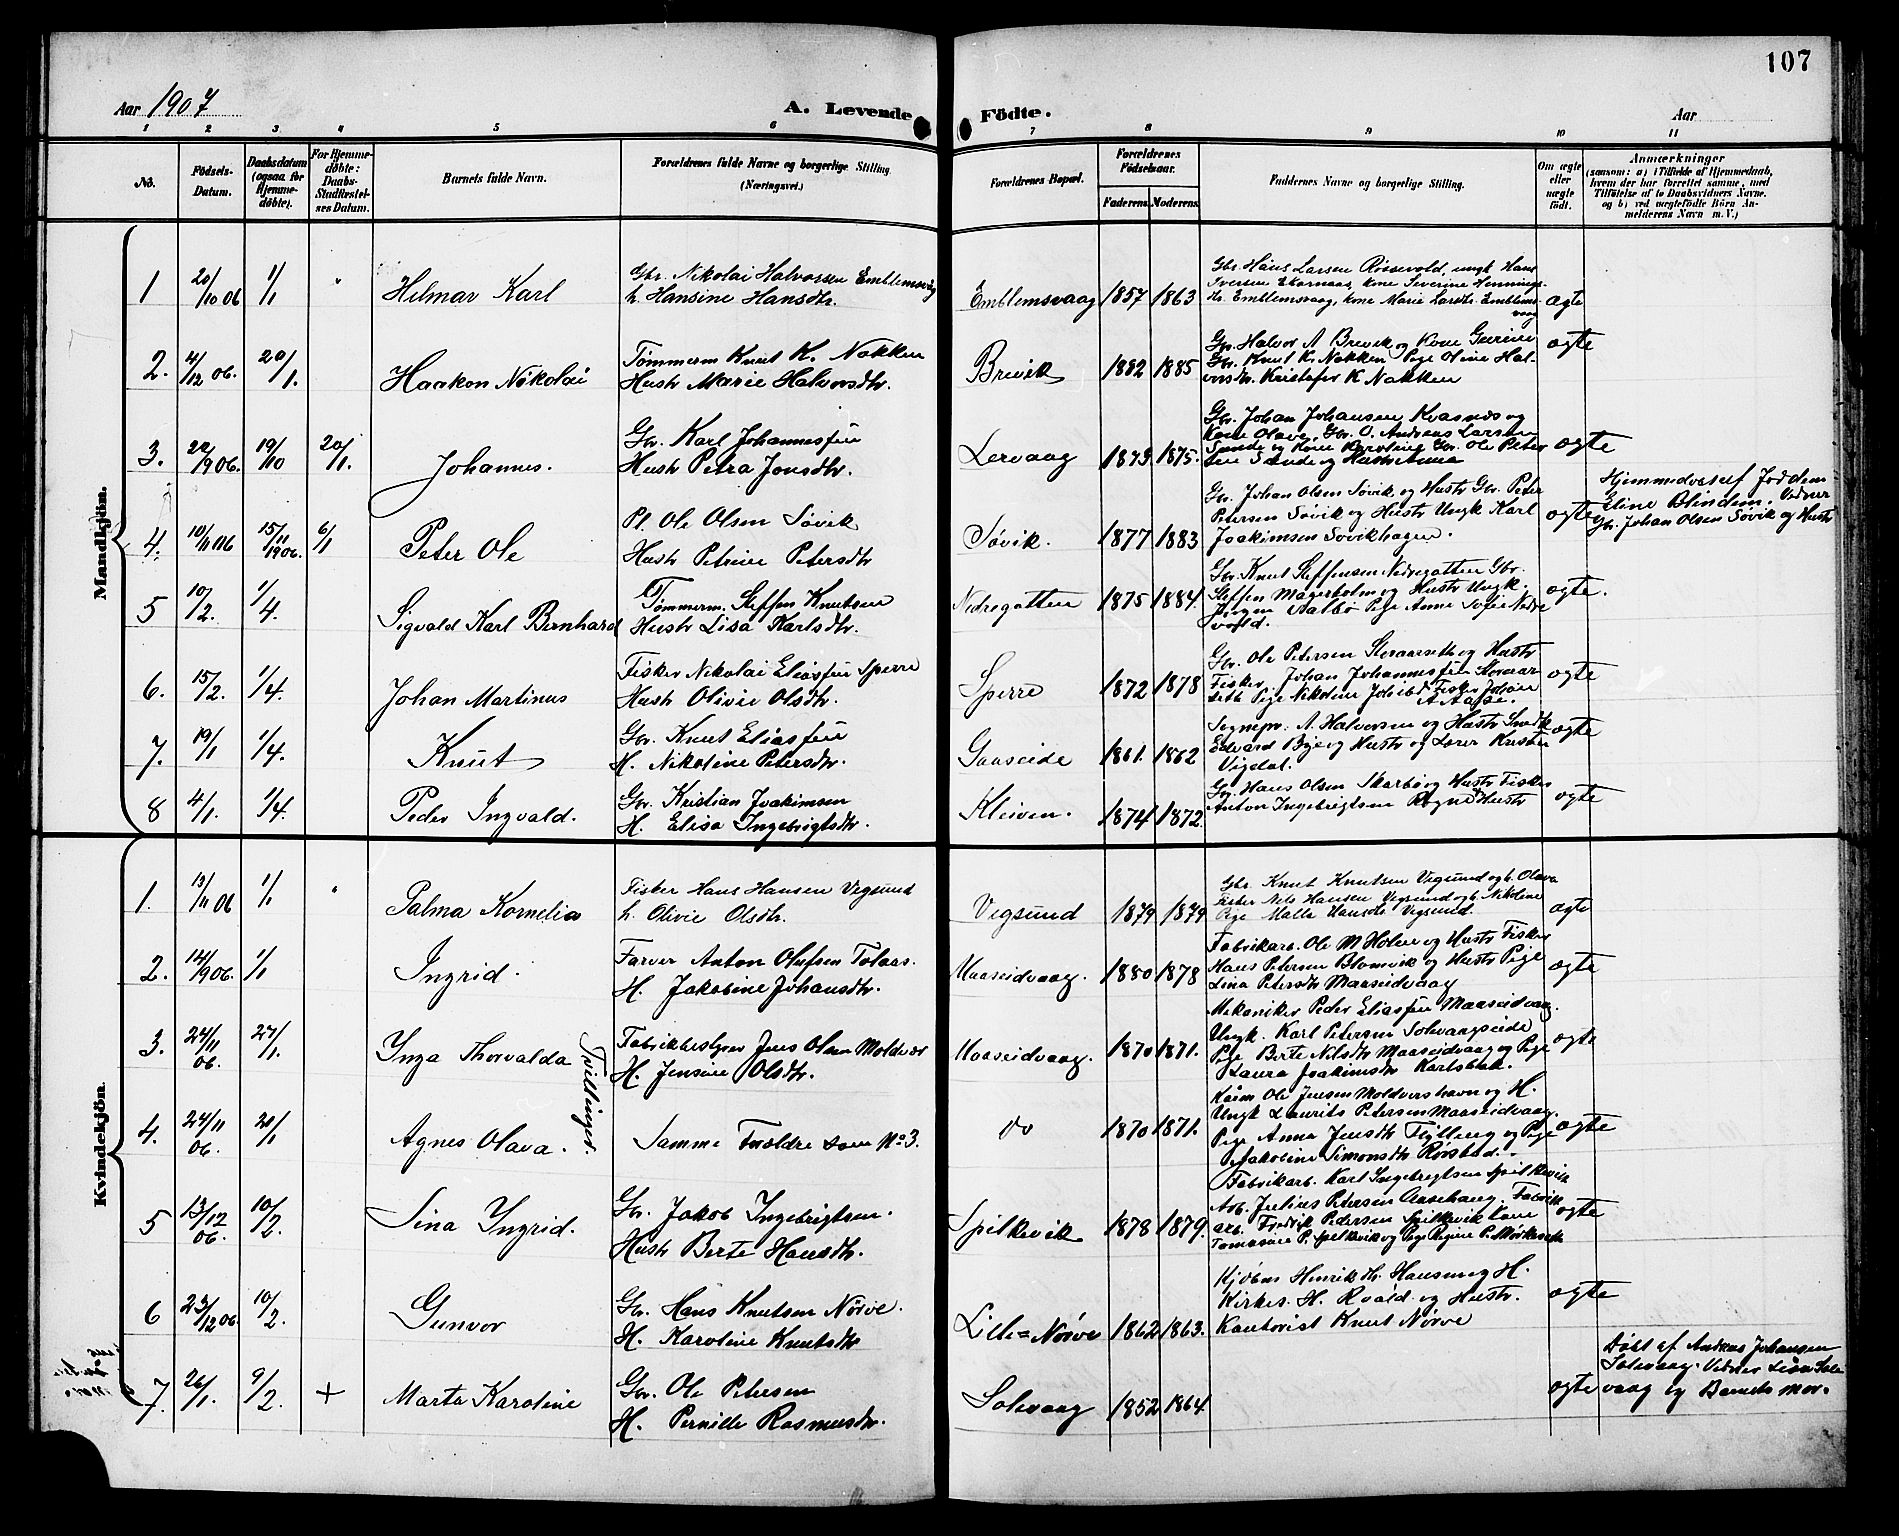 107
Aar 1907
A. Levende Födte.
Aar
1 2 3 4 5 6 7 8 9 10 11
No.
Födsels-Datum.
Daabsdatum (ogsaa for Hjemme-döbte).
For Hjemme-döbte: Daabs-Stadfæstel-ses Datum.
Barnets fulde Navn.
Forældrenes fulde Navne og borgerlige Stilling. (Næringsvei.)
Forældrenes Bopæl.
Forældrenes Födselsaar.
Faderens. Moderens.
Faddernes Navne og borgerlige Stilling.
Om ægte eller uægte født.
Anmærkninger
(saasom: a) i Tilfælde af Hjemmedaab, hvem der har forrettet samme, med Tilföielse af to Daabsvidners Navne, og b) ved uægtefödte Börn An-melderens Navn m. V.)
Mandkjön.
1 20/10 06 1/1 " Hilmar Karl
Gbr. Nikolai Halvorsen Emblemsvåg
h. Hansine Hansdtr.
Emblemsvaag 1857 1863
Gbr. Hans Larsen Røssevold, ungk Hans
Iversen Ekornaas, kone Severine Hennings-
dtr. Emblemsvaag, kone Marie Larsdtr. Emblems-
vaag
ægte
2. 4/12 06. 20/1. Haakon Nikolai
Tømmerm Knut K. Nakken
Hustr Marie Halvorsdtr.
Brevik 1882 1885
Gbr. Halvor A Brevik og Kone Gurine
Gbr. Knut K. Nakken Pige Oline Hal-
vorsdtr. Kristofer K Nakken
ægte
3. 22/9 06. 19/10 20/1. Johannes.
Gbr. Karl Johannessen
Hustr Petra Jonsdtr.
Lervaag 1873 1875.
Gbr. Johan Johansen Kvasnes og
Kone Olava, Gbr. O. Andreas Larsen
Sunde og Kone Karoline Gbr. Ole Peter
sen Sunde og Hustr Anna
ægte
4. 10/11 06 15/11 1906. 6/1 Peter Ole
Pl. Ole Olsen Søvik
Hustr Petrine Petersdtr
Søvik. 1877 1883
Gbr. Johan Olsen Søvik og Hustr Gbr. Peter
Petersen Søvik og Hustr Ungk Karl
Joakimsen Søvikhagen.
ægte
Hjemmedøbt af Jordem
Eline Blindem. Vidner
Gbr. Johan Olsen Søvik og Hustr
5 10/2. 1/4. Sigvald Karl Bernhard
Tømmerm. Steffen Knutsen
Hustr Lisa Karlsdtr.
Nedregotten 1875 1884.
Gbr. Knut Steffensen Nedregotten Gbr.
Steffen Magerholm og Hustr Ungk.
Jørgen Aalbø Pige Anne Sofie Nedre
vold.
ægte.
6. 15/2. 1/4. Johan Martinus
Fisker Nikolai Eliassen Sperre
Hustr Olivie Olsdtr.
Sperre 1872 1878
Gbr. Ole Petersen Skraarseth og Hustr
Fisker Johan Johannessen
Pige Nikoline Fisker Johan
A Aasse.
ægte
7. 19/1 1/4. Knut
Gbr. Knut Eliassen
H. Nikoline Petersdtr.
Gaaseide 1861. 1862
A. Halvorsen og Hustr Snedk
Edvard Bye og Hustr og Lærer Kristen
Vigdal.
ægte
8 4/1. 1/4. Peder Ingvald.
Gbr. Kristian Joakimsen
H. Elisa Ingebrigtsdtr.
Kleiven. 1874 1872.
Gbr. Hans Olsen Skarbø og Hustr Fisker
Anton Ingebrigtsen Rogne Hustr
ægte
Kvindekjön.
1. 13/11 06 1/1 " Palma Kornelia
Fisker Hans Hansen Vegsund
h. Olivie Olsdtr.
Vegsund 1879 1879
Gbr. Knut Knutsen Vegsund og h. Olava
Fisker Nils Hansen Vegsund og h. Nikoline
Pige Malla Hansdtr Vegsund.
ægte
2. 12/9 06. 1/1 Ingrid.
Farver Anton Olufsen Tolaas.
H. Jakobine Johansdtr.
Maaseidvaag. 1880 1878
Fabrikarb. Ole M Holen og Hustr Fisker
Hans Petersen Blomvik og Hustr Pige
Lina Petersdtr Maaseidvaag
ægte
3. 24/11 06. 27/1. Inga Thorvalda
Tvillinger.
Fabrikbestyrer Jens Olsen Moldvær
H. Jensine Olsdtr.
Maaseidvaag. 1870 1871.
Mekaniker Peder Eliassen Maaseidvaag.
Ungk. Karl Petersen Solevaagseide
Pige Berte Nilsdtr Maaseidvaag og Pige
Laura Joakimsdtr Karlsbak.
ægte
4. 24/11 06. 20/1 Agnes Olava.
Samme Forældre som No 3.
do 1870 1871.
Kaem Ole Jensen Moldvershavn og H.
Ungk Laurits Petersen Maaseidvaag.
Pige Anna Jensdtr Fylling og Pige
Jakobine Simonsdtr Rørstad.
ægte
5 13/12 06. 10/2. Sina Ingrid.
Gbr. Jakob Ingebrigtsen.
Hustr Berte Hansdtr.
Spilkevik 1878 1879.
Fabrikarb. Karl Ingebrigtsen Spilkevik
Arb. Julius Petersen Aasehaug. Fabrik
arb. Fredrik Pedersen Spilkevik Kone
Tomasine P. Spilkevik og Pige Regine P. Mørkeseth
ægte
6 23/12 06. 10/2. Gunvor
Gbr. Hans Knutsen Nørve.
H. Karoline Knutsdtr
Lille=Nørve 1862 1863.
Kjøbm Henrik Th. Hansen og H.
Kirkes. H. Roald og Hustr.
Kontorist Knut Nørve
ægte
7. 26/1. 9/2. + Marta Karoline
Gbr. Ole Petersen
H. Pernille Rasmusdtr.
Solevaag 1852 1864.
ægte
Døbt af Andreas Johansen
Solevaag. Vidner Lisa Sole
vaag og Barnets Mor.